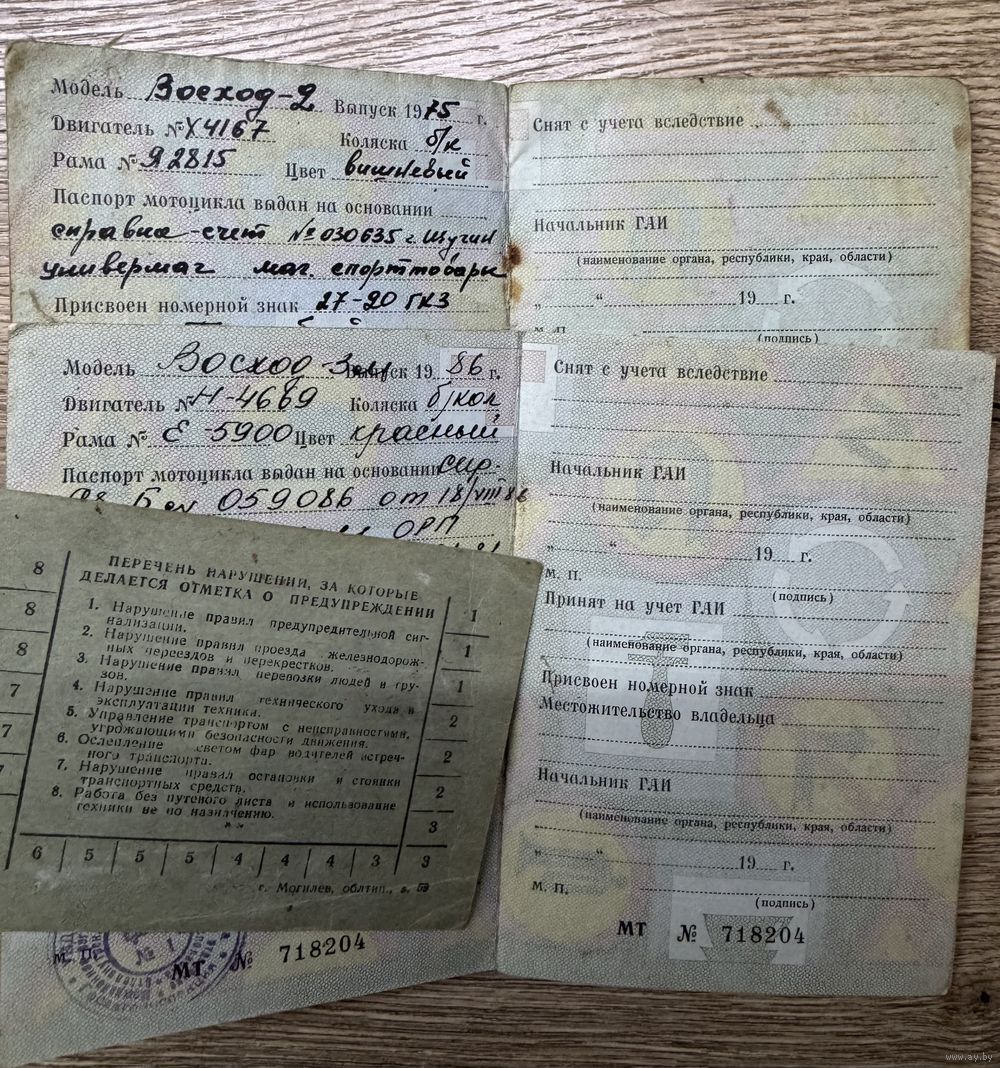 Модель Восход-2 Выпуск 1975 г.
Двигатель № Х4167 Коляска б/к
Рама № Я 2815 Цвет вишневый
Паспорт мотоцикла выдан на основании
справка-счет № 030635 г. Щучин
универмаг маг. спорттовары
Присвоен номерной знак 27-20 ГКЗ
Снят с учета вследствие
Начальник ГАИ
(наименование органа, республики, края, области)
„ “ 19 г.
м. п.
(подпись)
Модель Восход-3м Выпуск 1986 г.
Двигатель № Н-4669 Коляска б/кол
Рама № Е-5900 Цвет красный
Паспорт мотоцикла выдан на основании спр.
059086 от 18/VIII 86
ОРП
Снят с учета вследствие
Начальник ГАИ
(наименование органа, республики, края, области)
„ “ 19 г.
м. п.
(подпись)
Принят на учет ГАИ
(наименование органа, республики, края, области)
Присвоен номерной знак
Местожительство владельца
Начальник ГАИ
(наименование органа, республики, края, области)
„ “ 19 г.
м. п.
(подпись)
МТ № 718204
ПЕРЕЧЕНЬ НАРУШЕНИЙ, ЗА КОТОРЫЕ
ДЕЛАЕТСЯ ОТМЕТКА О ПРЕДУПРЕЖДЕНИИ
1. Нарушение правил предупредительной сиг-
нализации.
2. Нарушение правил проезда железнодорож-
ных переездов и перекрестков.
3. Нарушение правил перевозки людей и гру-
зов.
4. Нарушение правил технического ухода и
эксплуатации техники.
5. Управление транспортом с неисправностями,
угрожающими безопасности движения.
6. Ослепление светом фар водителей встреч-
ного транспорта.
7. Нарушение правил остановки и стоянки
транспортных средств.
8. Работа без путевого листа и использование
техники не по назначению.
8
8
8
7
7
1
1
1
2
2
2
3
6 5 5 5 4 4 4 3 3
г. Могилев, облтип., з.
м. п.
МТ № 718204
www.ay.by